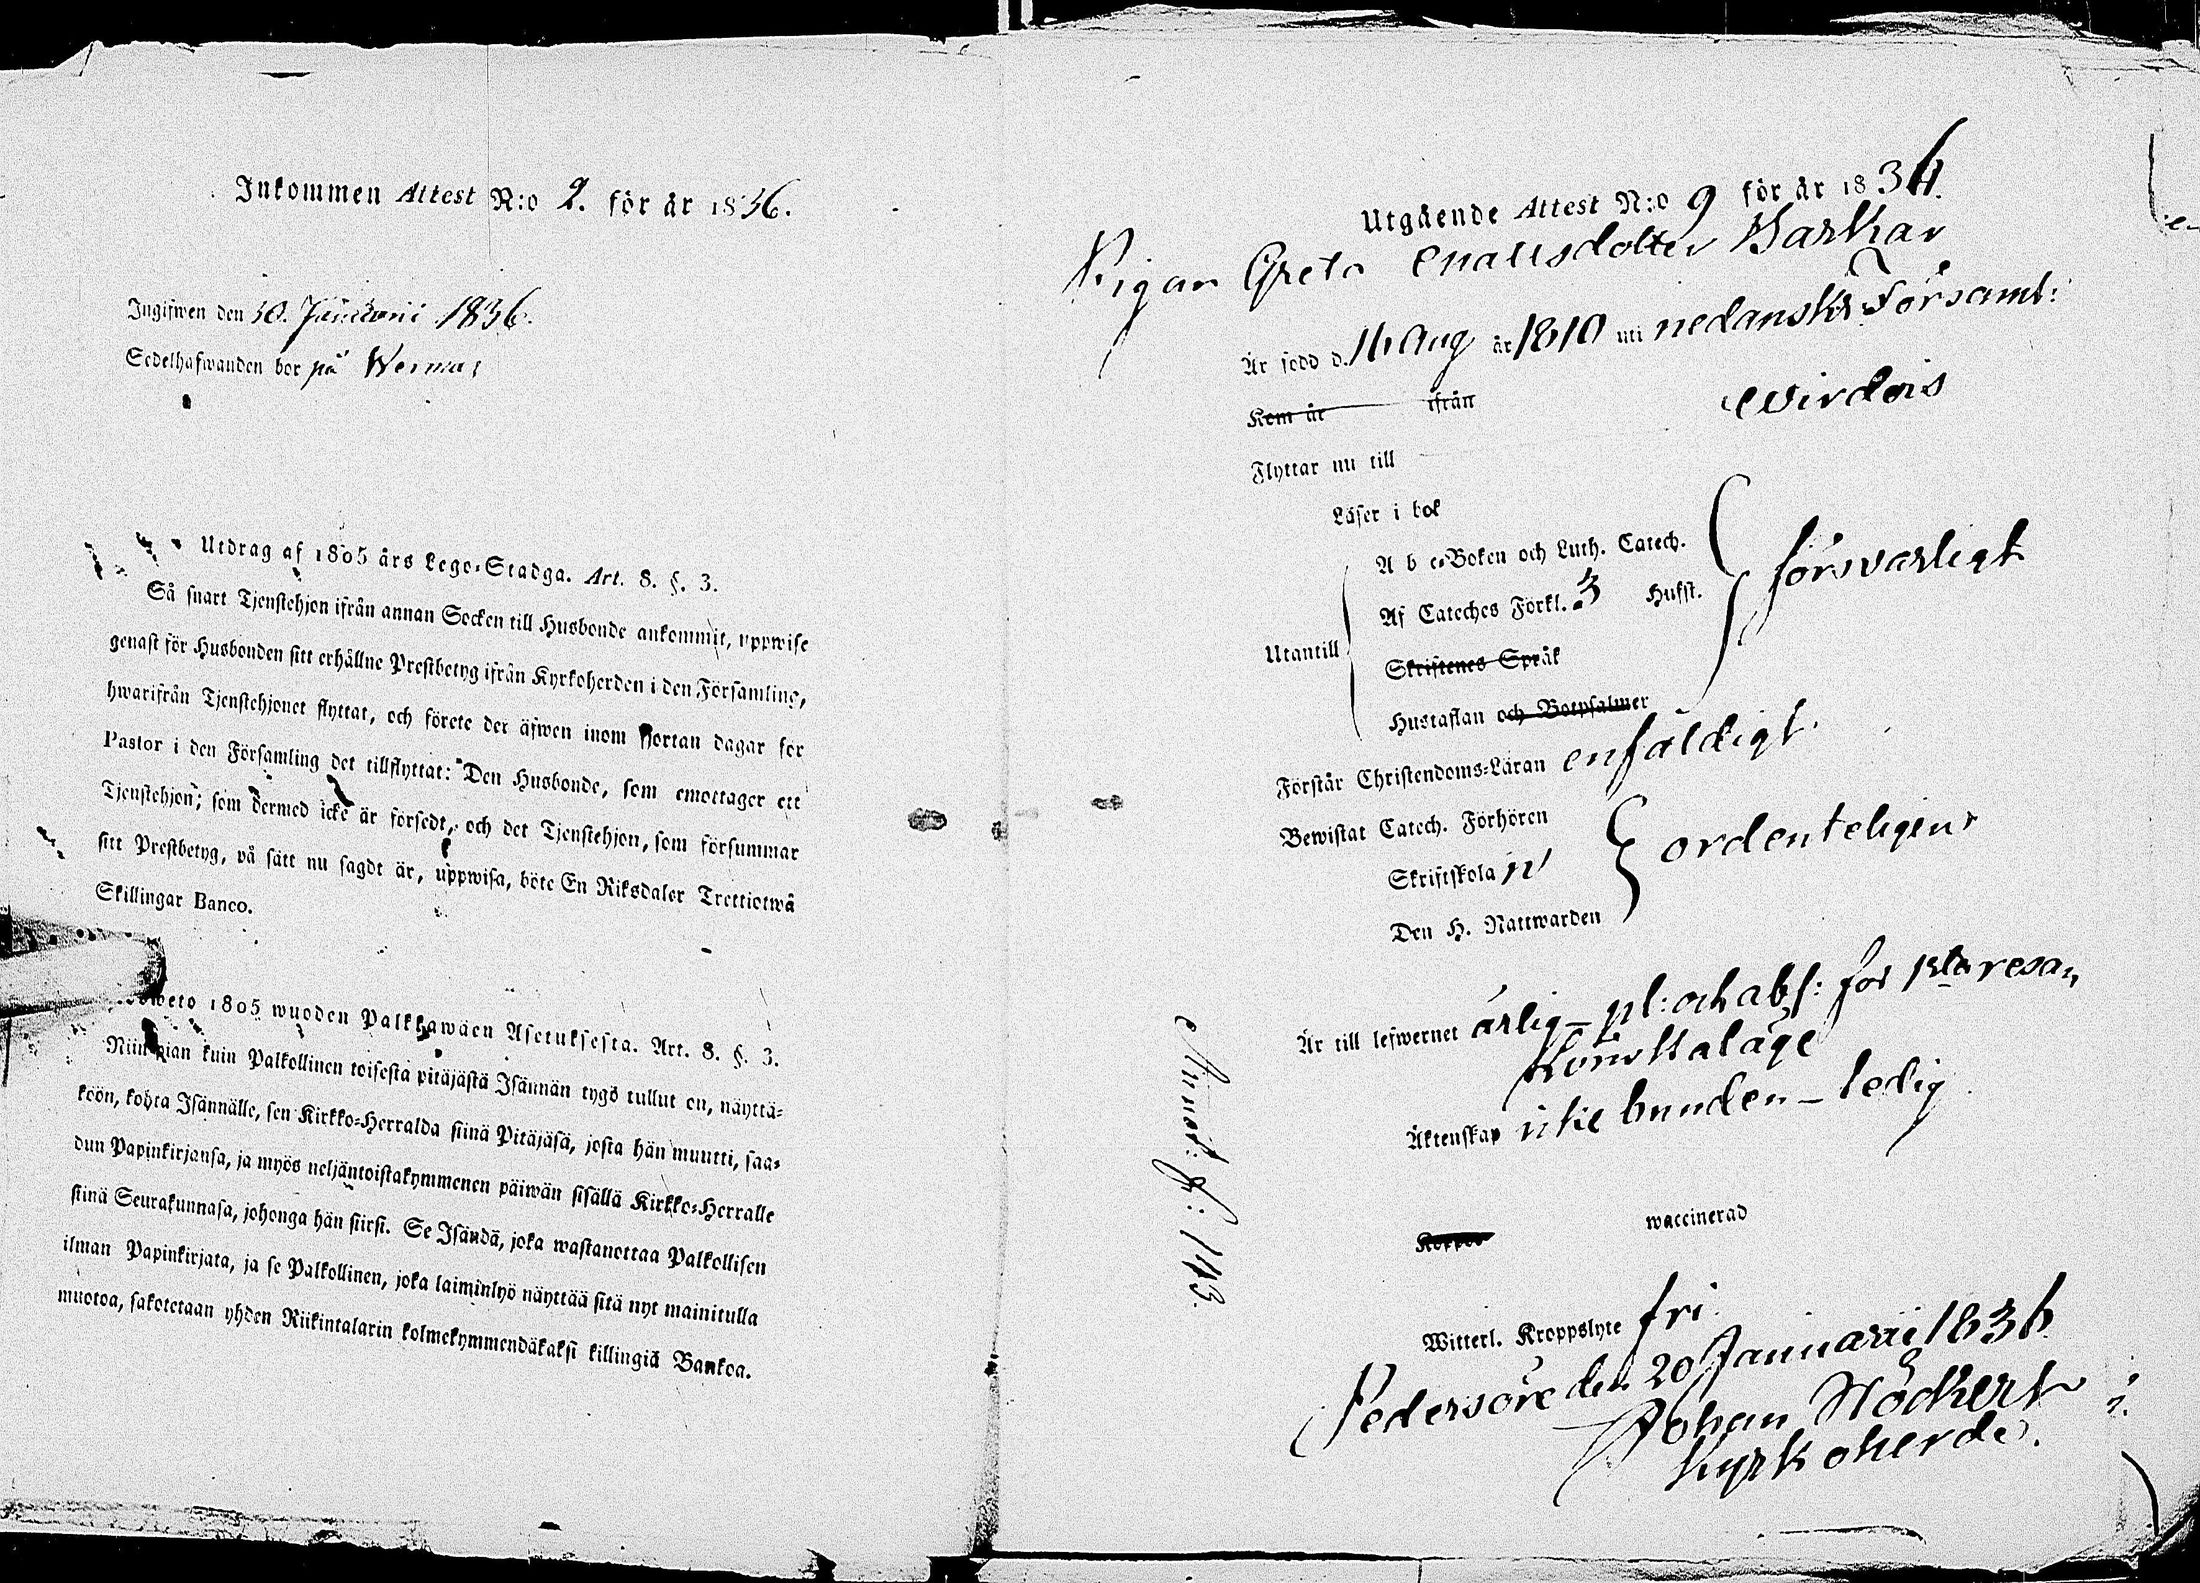 Inkommen Attest N:o 2. för år 1836.
Ingifwen den 30. Januarii 1836.
Sedelhafwanden bor på
Utdrag af 1805 års Lego-Stadga. Art. 8. §. 3.
Så snart Tjenstehjon ifrån annan Socken till Husbonde ankommit, uppwise
genast för Husbonden sitt erhållne Prestbetyg ifrån Kyrkoherden i den Församling,
hwarifrån Tjenstehjonet flyttat, och förete det äfwen inom fjortan dagar för
Pastor i den Församling det tillflyttat: Den Husbonde, som emottager ett
Tjenstehjon, som dermed icke är försedt, och det Tjenstehjon, som försummar
sitt Prestbetyg, på sätt nu sagdt är, uppwisa, böte En Riksdaler Trettiotwå
Skillingar Banco.
1805 wuoden Palkkawäen Asetuksesta. Art. 8. §. 3.
Niin pian kuin Palkollinen toisesta pitäjästä Isännän tygö tullut on, näyttä-
köön, kohta Isännälle, sen Kirkko-Herralda siinä Pitäjäsä, josta hän muutti, saa-
dun Papinkirjansa, ja myös neljäntoistakymmenen päiwän sisällä Kirkko-Herralle
siinä Seurakunnasa, johonga hän siirsi. Se Isändä, joka wastanottaa Palkollisen
ilman Papinkirjata, ja se Palkollinen, joka laiminlyö näyttää sitä nyt mainitulla
muotoa, sakotetaan yhden Riikintalarin kolmekymmendäkaksi killingiä Bankoa.
Utgående Attest N:o 9 för år 1836.
Pigan Greta Barkar
Är född d. 16 Aug år 1810 uti nedanskr Församl:
Kom år ifrån
Flyttar nu till Wirdois
Läser i bok
A b c-Boken och Luth. Catech.
Af Cateches Förkl. 3 Hufst.
försvarligt
Utantill
Skriftenes Språk
Hustaflan och Botpsalmer
Förstår Christendoms-Läran enfaldigt.
Bewistat Catech. Förhören
Skriftskola
ordenteligen
Den H. Nattwarden
Är till lefwernet ärlig_ pl: och abs: för 1sta resan
Äktenskap icke bunden_ ledig
Koppor waccinerad
Witterl. Kroppslyte fri.
Pedersöre den 20 Januarii 1836
Johan
Kyrkoherde.
Annot: f: 143.